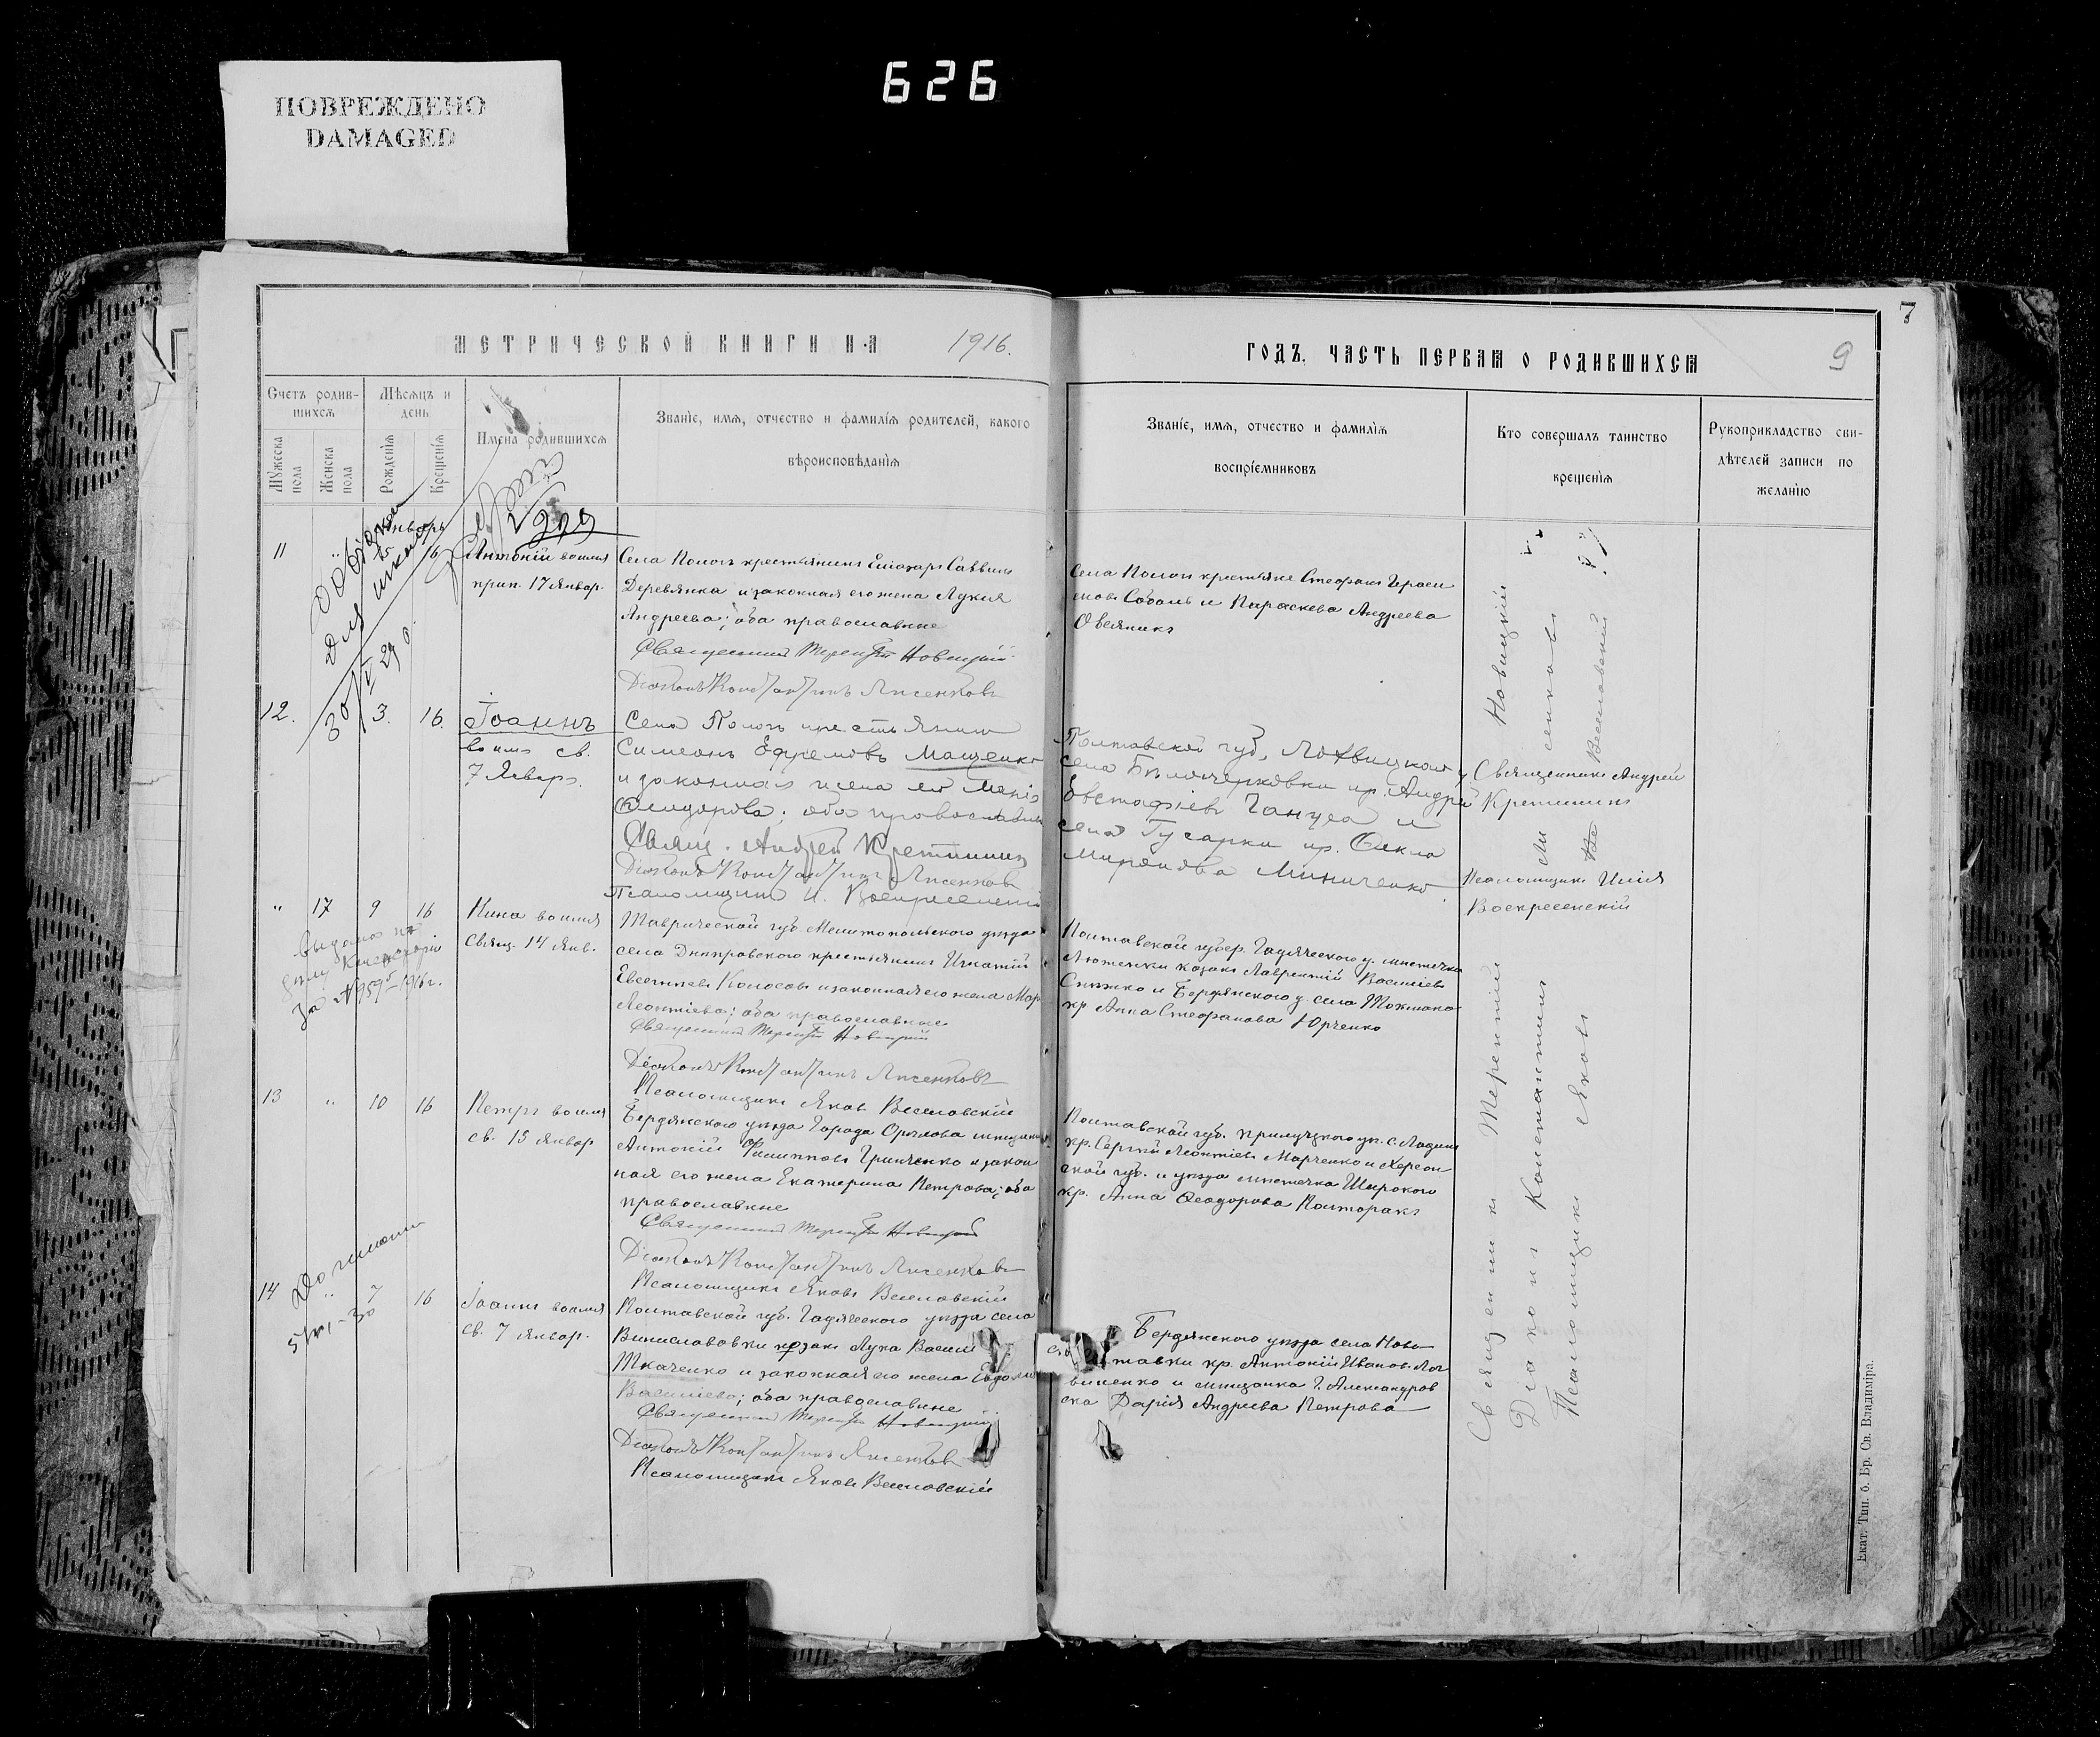 626
ПОВРЕЖДЕНО
DAMAGED
7
МЕТРИЧЕСКОЙ КНИГИ НА 1916.
ГОДЪ, ЧАСТЬ ПЕРВАЯ О РОДИВШИХСЯ
9
Счетъ родив-
шихся
Мѣсяцъ и
день
Мужеска
пола
Женска
пола
Рожденія
Крещенія
Имена родившихся
Званіе, имя, отчество и фамилія родителей, какого
вѣроисповѣданія
Званіе, имя, отчество и фамилія
воспріемниковъ
Кто совершалъ таинство
крещенія
Рукоприкладство сви-
дѣтелей записи по
желанію
Январь
для школы
30/I 29
11 " 16
Антоній во имя
прип. 17 Январ.
Села Пологъ крестьянинъ Елеазаръ Саввинъ
Деревянка и законная его жена Лукия
Андреева; оба православные
Священникъ Терентій Новицкій
Діаконъ Константинъ Лисенковъ
Села Пологи крестьяне Стефанъ Гераси
мовъ Соболь и Параскева Андреева
Овсяникъ
12. 3. 16.
Іоаннъ
во имя св.
7 Январ.
Села Пологъ крестьянинъ
Симеонъ Ефремовъ Мащенко
и законная жена его
оба православные
Свящ. Андрей Кретининъ
Діаконъ Константинъ Лисенковъ
Псаломщикъ И. Воскресенскій
Полтавской губ, Лохвицкаго у
села Бѣлоцерковки кр. Андрей
Евстафіевъ Гануса и
села Гусарки кр. Фекла
Миронова Миниченко
Священникъ Андрей
Кретининъ
Псаломщикъ Илія
Воскресенскій
" 17 9 16
Выдано по
за № 959 1916 г.
Нина во имя
Свящ. 14 Янв.
Таврической губ. Мелитопольского уѣзда
села Днѣпровского крестьянинъ Игнатій
Евсегнѣевъ Колосовъ и законная его жена Мар
Леонтіева; оба православные
Священникъ Терентій Новицкій
Діаконъ Константинъ Лисенковъ
Псаломщикъ Яковъ Веселовскій
Полтавской губер. Гадяческого у. мѣстечка
Лютеньки козакъ Лаврентій Васильевъ
Снѣжко и Бердянского у. села Токмака
кр. Анна Стефанова Юрченко
13 " 10 16
Петръ во имя
св. 15 Январ
Бердянского уѣзда Города Орѣхова мѣщанинъ
Антоній Филипповъ Гринченко и закон
ная его жена Екатерина Петрова; оба
православные
Священникъ Терентій Новицкій
Діаконъ Константинъ Лисенковъ
Псаломщикъ Яковъ Веселовскій
Полтавской губ. Прилуцкого уѣ. с. Ладина
кр. Сергѣй Леонтіевъ Марченко и Херсон
ской губ. и уѣзда мѣстечка Широкого
кр. Анна Феодорова Полторакъ
5/VI-30
14 " 7 16
Іоаннъ во имя
св. 7 Январ.
Полтавской губ. Гадяческого уѣзда села
Виниславовки козакъ Лука Васил
Ткаченко и законная его жена Евдокія
Василіева; оба православные
Священникъ Терентій Новицкій
Діаконъ Константинъ Лисенковъ
Псаломщикъ Яковъ Веселовскій
Бердянского уѣзда села Ново
ставки кр. Антоній Иванов. Лог
виненко и мѣщанка г. Александров
ска Дарія Андреева Петрова
Священникъ Терентій Новицкій
Діаконъ Константинъ Лисенковъ
Псаломщикъ Яковъ Веселовскій
Екат. Тип. б. Бр. Св. Владиміра.